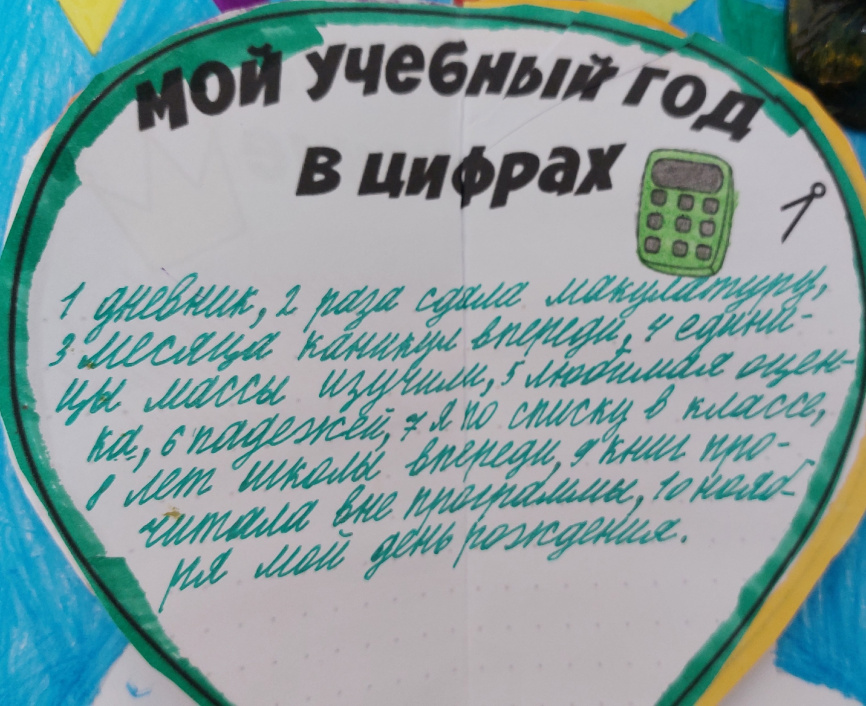 мой учебный год
в цифрах
1 дневник, 2 раза сдала макулатуру,
3 месяца каникул впереди, 4 едини-
цы массы изучили, 5 любимая оцен-
ка, 6 падежей, 7 я по списку в классе,
8 лет школы впереди, 9 книг про-
читала вне программы, 10 нояб-
ря мой день рождения.